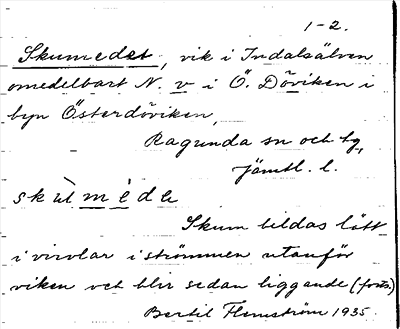 1-2.
Skumedet, vik i Indalsälven
omedelbart N. v i Ö. Döviken i
byn Österdöviken,
Ragunda sn och tg,
Jämtl. l.
Skum bildas lätt
i virvlar i strömmen utanför
viken och blir sedan liggande (forts.)
Bertil Flemström 1935.